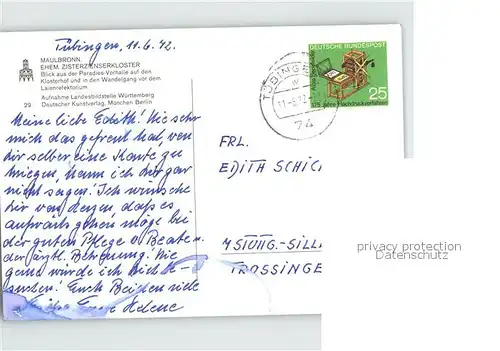 Tübingen, 11.6.72.
MAULBRONN.
EHEM. ZISTERZIENSERKLOSTER
Blick aus der Paradies-Vorhalle auf den
Klosterhof und in den Wandelgang vor dem
Laienrefektorium
Aufnahme Landesbildstelle Württemberg
29 Deutscher Kunstverlag, München Berlin
Meine liebe Edith! Wie sehr
mich das gefreut hat, von
dir selber eine Karte zu
kriegen, kann ich dir gar
nicht sagen! Ich wünsche
Dir von Herzen, daß es
aufwärts gehen möge bei
der guten Pflege u.
der ärztl. Betreuung! Wie
gerne würde ich Dich
suchen! Euch Beiden viele
Helene
TÜBINGEN
11.-6.72
74
DEUTSCHE BUNDESPOST
175 Jahre Flachdruckverfahren
25
FRL.
EDITH SCHIC
7 STUTTG.-SILL
TROSSINGE
privacy protection
Datenschutz